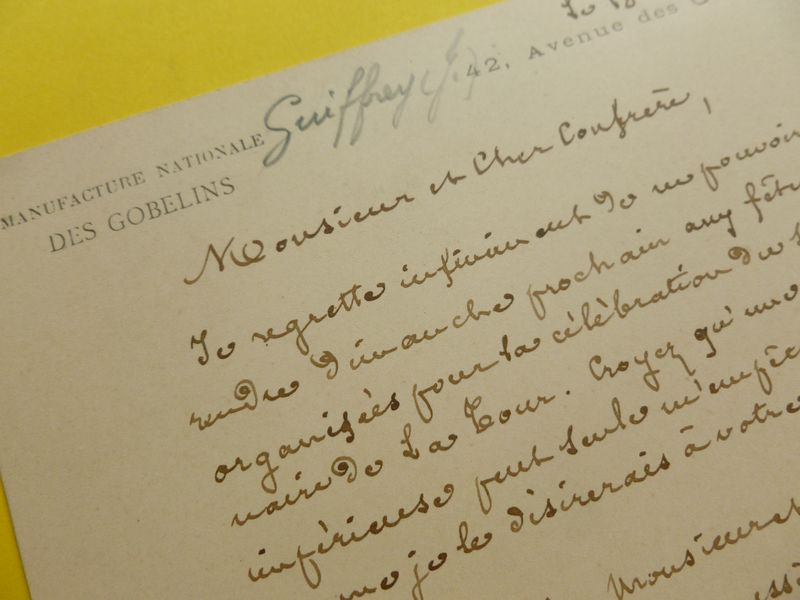 42, Avenue des
Guiffrey J.
MANUFACTURE NATIONALE
DES GOBELINS
Monsieur et Cher Confrère,
Je regrette infiniment de ne pouvoir
rendre Dimanche prochain aux fêtes
organisées pour la célébration du
naire de La Tour. Croyez qu'une
impérieuse peut seule m'empêc
me je le désirerais à votre
Monsieur et